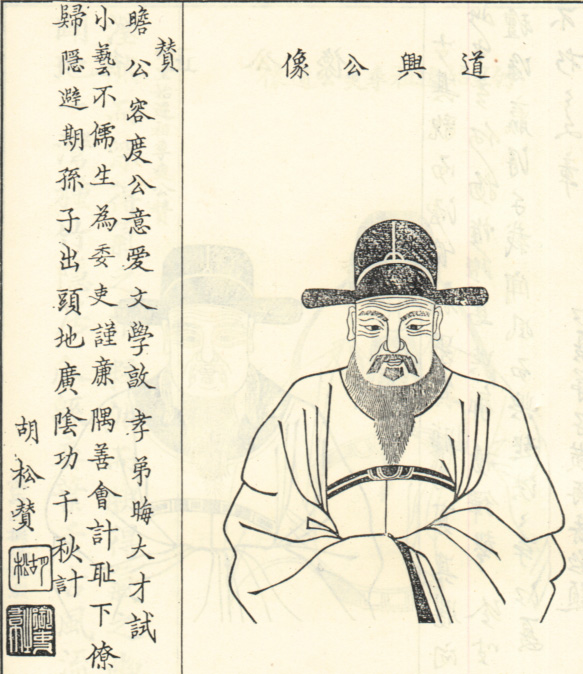 道興公像
贊
瞻公容度公意愛文學敨孝弟晦大才試
小藝不儒生為委吏謹廉隅善會計耻下僚
歸隱避期孫子出頭地廣陰功千秋計
胡松贊
胡松